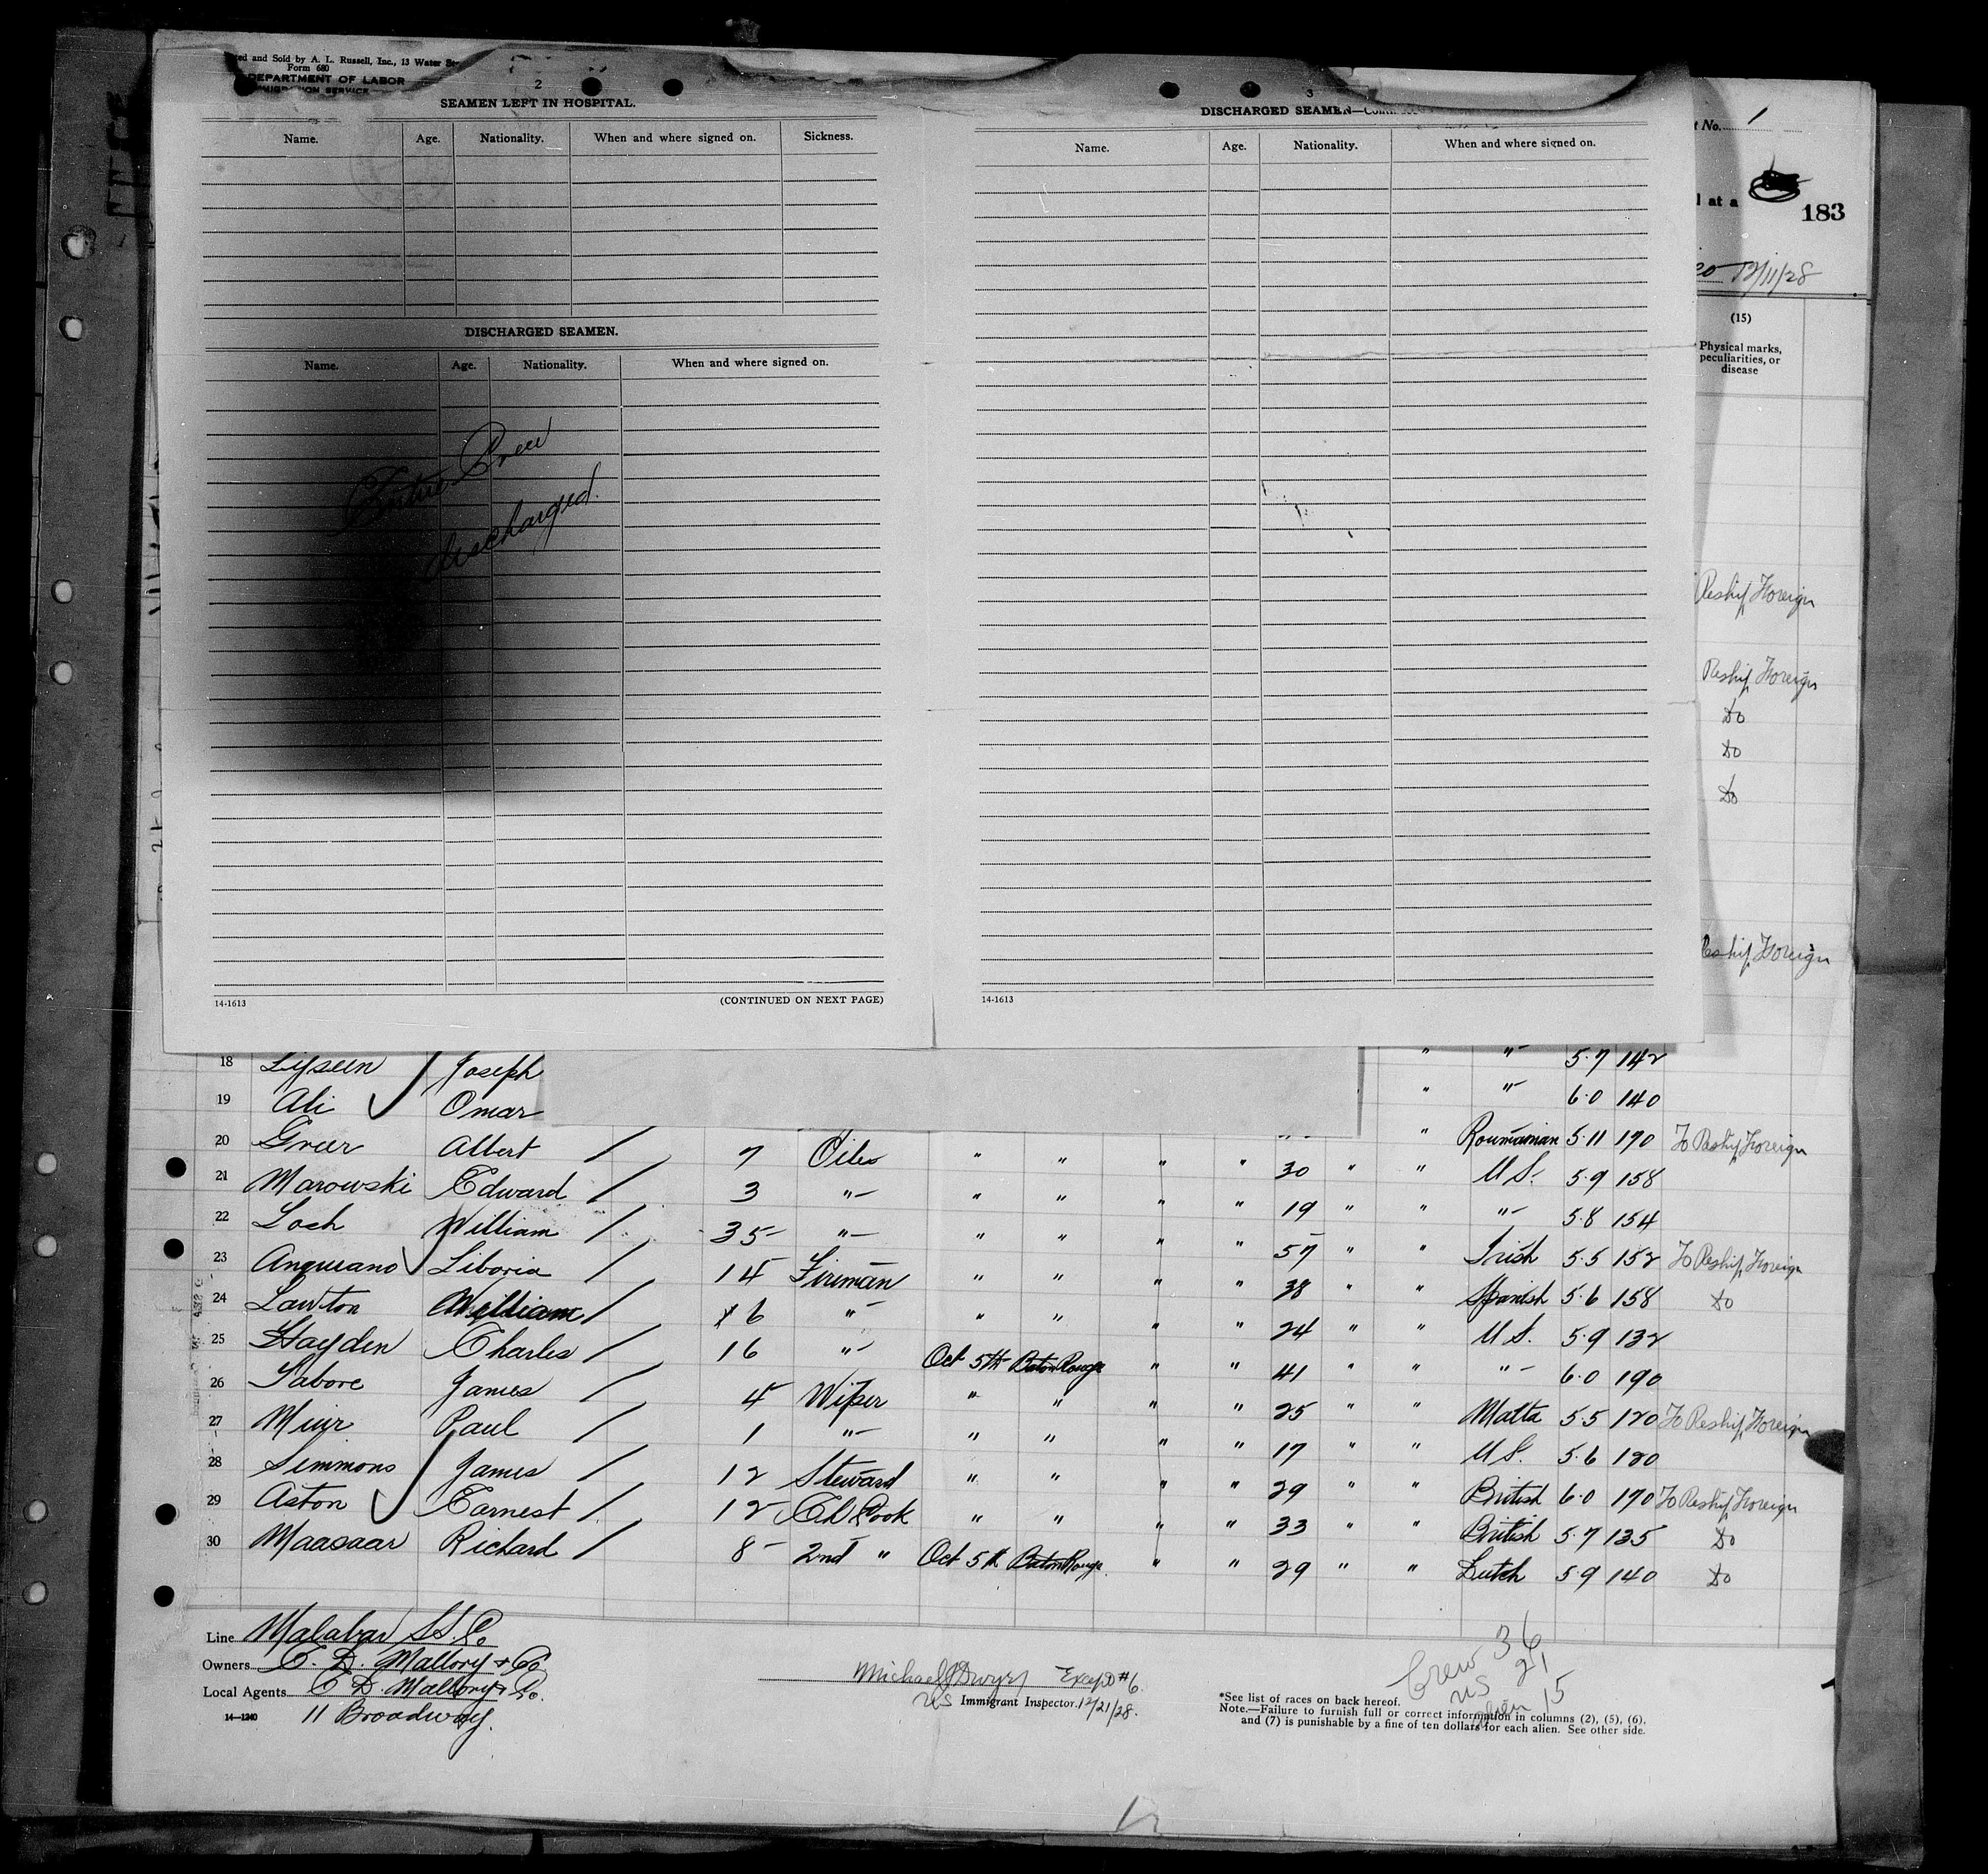 ed and Sold by A. L. Russell, Inc., 13 Water
Form 680
DEPARTMENT OF LABOR
2
SEAMEN LEFT IN HOSPITAL.
Name. Age. Nationality. When and where signed on. Sickness.
DISCHARGED SEAMEN.
Name. Age. Nationality. When and where signed on.
Entire Crew
discharged.
14-1613 (CONTINUED ON NEXT PAGE)
3
DISCHARGED SEAMEN—
Name. Age. Nationality. When and where signed on.
14-1613
t No. 1
l at a
183
12/11/28
(15)
Physical marks,
peculiarities, or
disease
Reship Foreign
Reship Foreign
Do
Do
Do
Reship Foreign
18 Joseph " "- 5.7 142
19 Ali Omar " "- 6.0 140
20 Greer Albert / 7 Oiler " " " " 30 " " Roumanian 5.11 170 To Reship Foreign
21 Marowski Edward / 3 "- " " " " 19 " " U.S. 5.9 158
22 Loch William / 35 "- " " " " 57 " " "- 5.8 154
23 Anguiano Liboria / 14 Fireman " " " " 38 " " Irish 5.5 152 To Reship Foreign
24 Lawton William / 6 "- " " " " 24 " " Spanish 5.6 158 Do
25 Hayden Charles / 16 "- Oct 5th Baton Rouge " " 41 " " U.S. 5.9 132
26 Sabore James / 4 Wiper " " " " 25 " " "- 6.0 190
27 Muir Paul / 1 "- " " " " 17 " " Malta 5.5 120 To Reship Foreign
28 Simmons James / 12 Steward " " " " 29 " " U.S. 5.6 120
29 Aston Earnest / 12 Ch Cook " " " " 33 " " British 6.0 170 To Reship Foreign
30 Maasaar Richard / 8 2nd " Oct 5th Baton Rouge " " 29 " " British 5.7 135 Do
Dutch 5.9 140 Do
Line Malabar S.S. Co
Owners C. D. Mallory & Co
Local Agents C. D. Mallory & Co.
14—1240 11 Broadway.
Michael J Dwyer Except #6.
US Immigrant Inspector. 12/21/28.
Crew 36
US 21
alien 15
*See list of races on back hereof.
Note.—Failure to furnish full or correct information in columns (2), (5), (6),
and (7) is punishable by a fine of ten dollars for each alien. See other side.